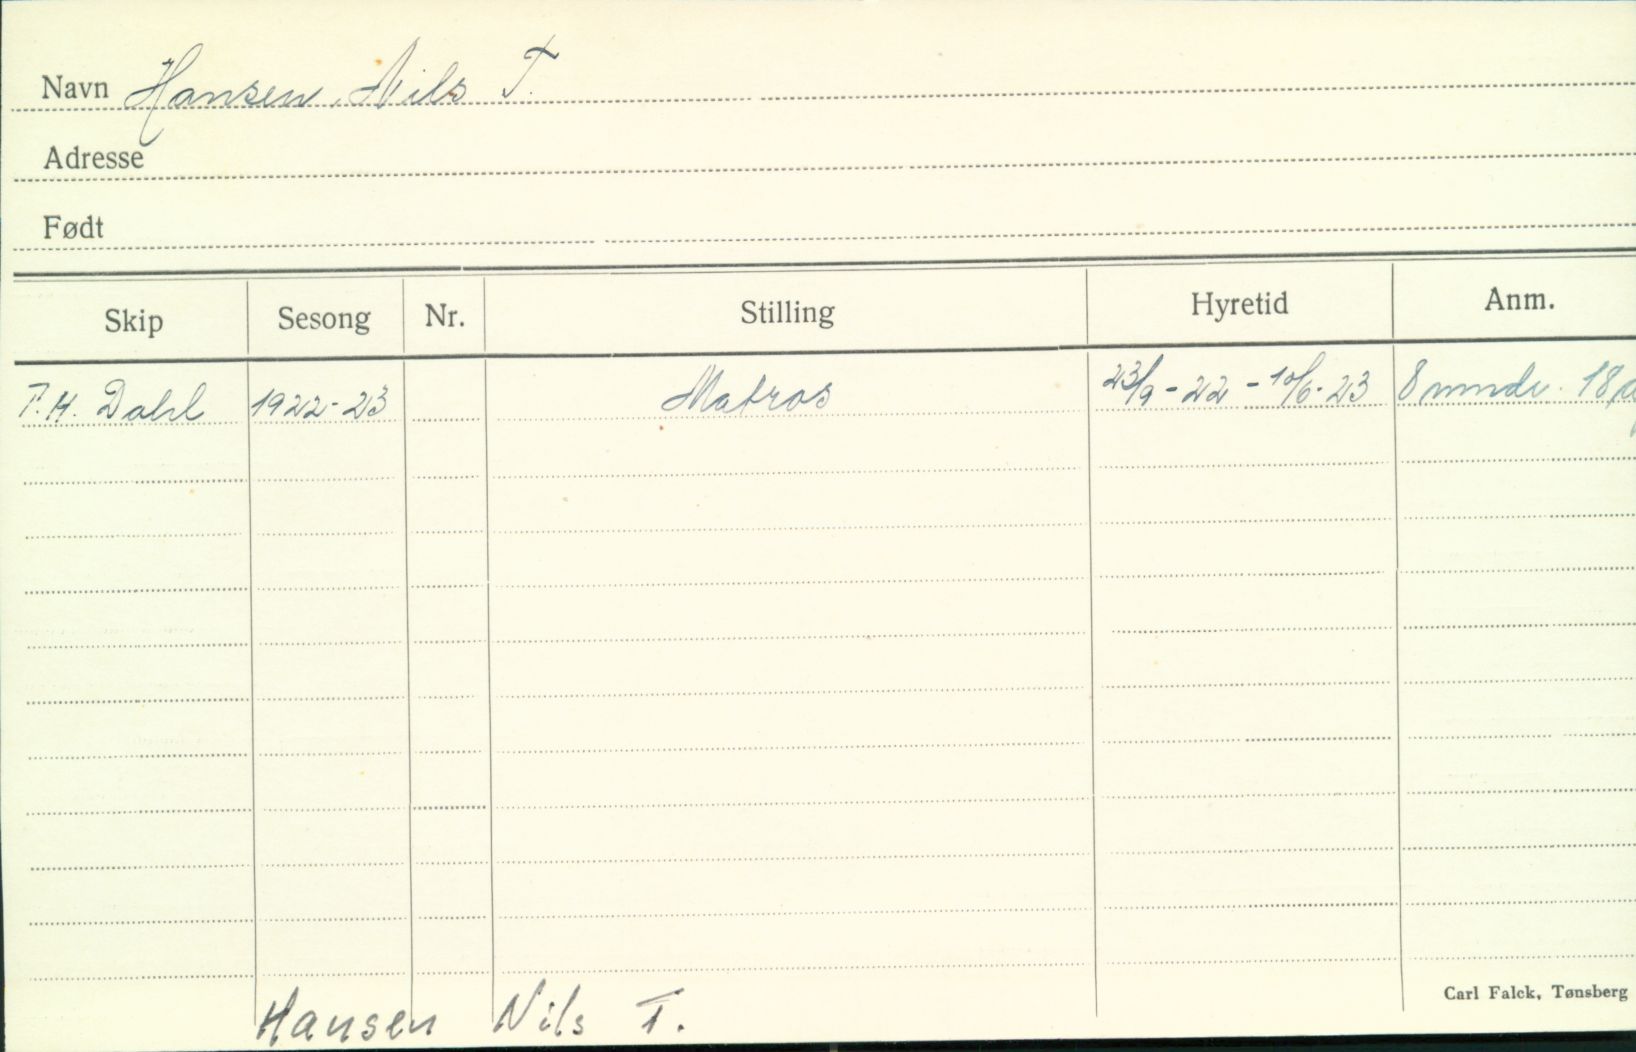 Navn Hansen, Nils T.
Adresse
Født
Skip Sesong Nr. Stilling Hyretid Anm.
T.H. Dahl 1922-23 Matros 23/9-22 - 10/6-23 8 mndr. 18
Carl Falck, Tønsberg
Hansen Nils T.